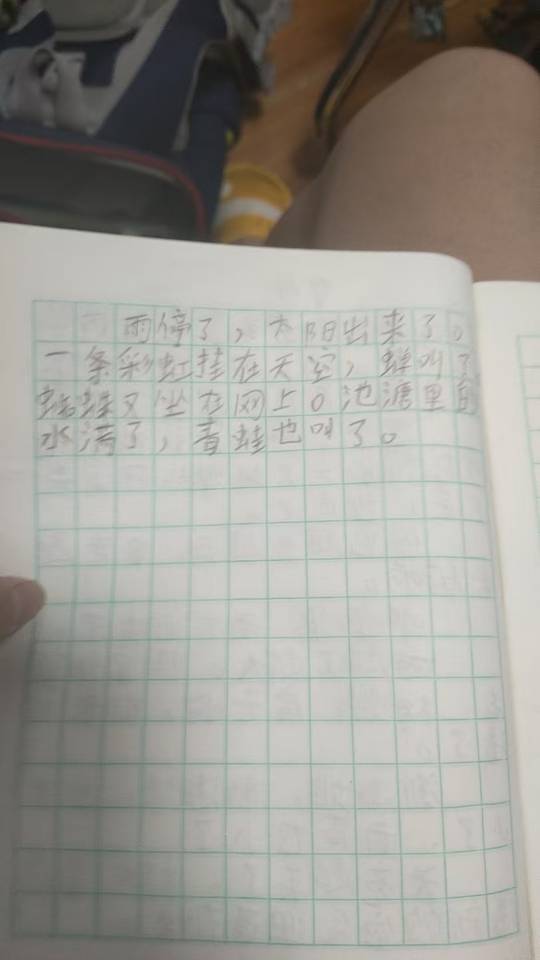 雨停了，太阳出来了，
一条彩虹挂在天空，蝉叫了
蜘蛛又坐在网上。池塘里的
水满了，青蛙也叫了。